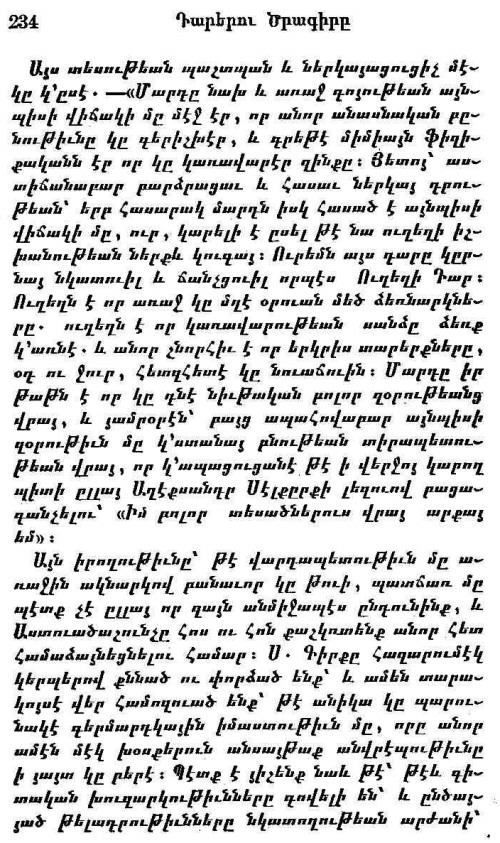 234
Դարերու Ծրագիրը
Այս տեսութեան պաշտպան և ներկայացուցիչ մէ-
կը կ՚ըսէ. —«Մարդը նախ և առաջ գոյութեան այն-
պիսի վիճակի մը մէջ էր, որ անոր անասնական բը-
նութիւնը կը գերիշխէր, և գրեթէ միմիայն ֆիզի-
քականն էր որ կը կառավարէր զինքը։ Յետոյ՝ աս-
տիճանաբար բարձրացաւ և հասաւ ներկայ դրու-
թեան՝ երբ հասարակ մարդն իսկ հասած է այնպիսի
վիճակի մը, ուր, կարելի է ըսել թէ նա ուղեղի իշ-
խանութեան ներքև կուգայ։ Ուրեմն այս դարը կըր-
նայ նկատուիլ և ճանչցուիլ որպէս Ուղեղի Դար։
Ուղեղն է որ առաջ կը մղէ օրուան մեծ ձեռնարկնե-
րը. ուղեղն է որ կառավարութեան սանձը ձեռք
կ՚առնէ. և անոր շնորհիւ է որ երկրիս տարերքները,
օդ ու ջուր, հետզհետէ կը նուաճուին։ Մարդը իր
թաթն է որ կը դնէ նիւթական բոլոր զօրութեանց
վրայ, և յամրօրէն՝ բայց ապահովաբար այնպիսի
զօրութիւն մը կ՚ստանայ բնութեան տիրապետու-
թեան վրայ, որ կ՚ապացուցանէ թէ ի վերջոյ կարող
պիտի ըլլայ Աղէքսանդր Սէլքըրքի լեզուով բացա-
գանչելու՝ «Իմ բոլոր տեսածներուս վրայ արքայ
եմ»։
Այն իրողութիւնը՝ թէ վարդապետութիւն մը ա-
ռաջին ակնարկով բանաւոր կը թուի, պատճառ մը
պէտք չէ ըլլայ որ զայն անմիջապէս ընդունինք, և
Աստուածաշունչը հոս ու հոն քաշկռտենք անոր հետ
համաձայնեցնելու համար։ Ս. Գիրքը հազարումէկ
կերպերով քննած ու փորձած ենք՝ և ամեն տարա-
կոյսէ վեր համոզուած ենք՝ թէ անիկա կը պարու-
նակէ գերմարդկային իմաստութիւն մը, որը անոր
ամէն մէկ խօսքերուն անսայթաք անվրէպութիւնը
ի յայտ կը բերէ։ Պէտք է յիշենք նաև թէ՝ թէև գի-
տական խուզարկութիւնները գովելի են՝ և ընծայ-
յած թելադրութիւնները նկատողութեան արժանի՝